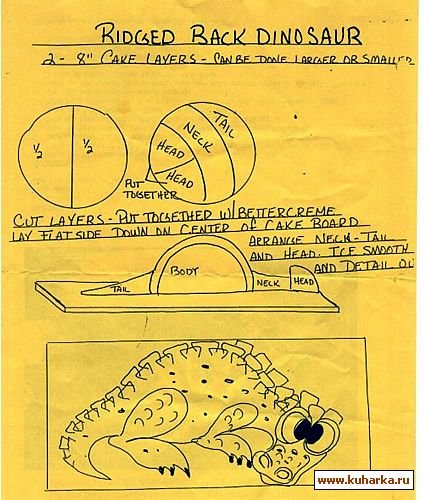 RIDGED BACK DINOSAUR
2 - 8" CAKE LAYERS - CAN BE DONE LARGER OR SMALLER
1/2 1/2
TAIL
NECK
HEAD
HEAD
PUT
TOGETHER
CUT LAYERS - PUT TOGETHER W/ BETTERCREME
LAY FLAT SIDE DOWN ON CENTER OF CAKE BOARD
ARRANGE NECK - TAIL
AND HEAD. ICE SMOOTH
AND DETAIL OU
BODY
TAIL
NECK
HEAD
www.kuharka.ru